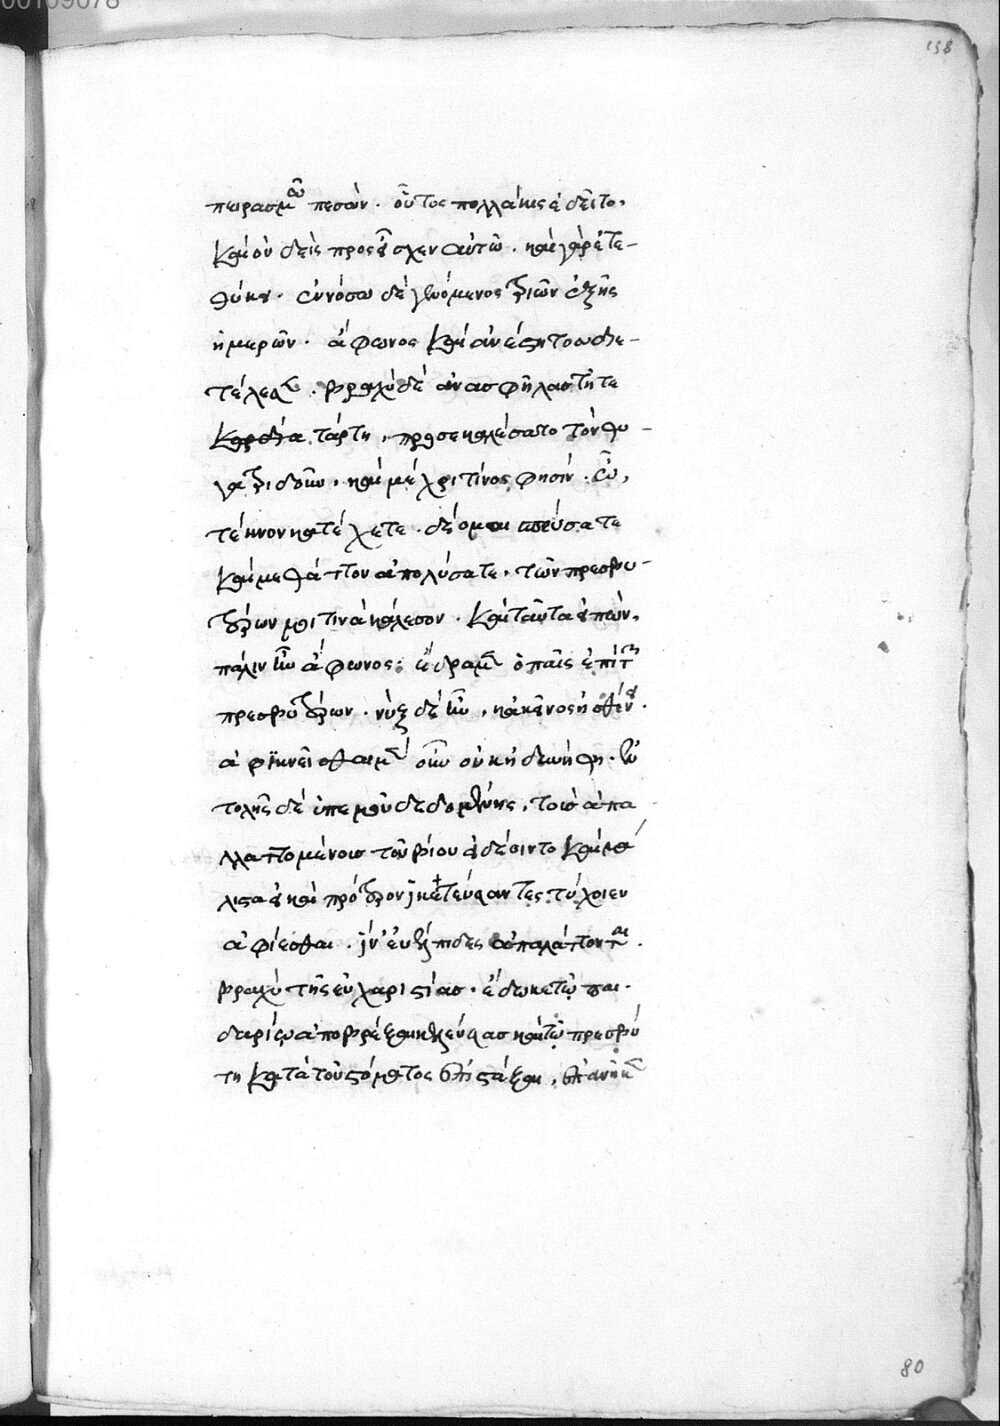 00109078
158
πειρασμῶ πεσών. οὗτος πολλάκις ἐδεῖτο.
καὶ οὐδεὶς προσεῖχεν αὐτῶ. καὶ γὰρ ἐτε-
θύκει. ἐν νόσω δὲ γενόμενος τριῶν ἑξῆς
ἡμερῶν. ἄφωνος καὶ ἀναίσθητος διε-
τέλεσεν. βραχὺ δὲ ἀνασφήλας τῆ τε
τάρτη, προσεκαλέσατο τὸν θυ-
γατριδοῦν. καὶ μέχρι τίνος φησίν. ὦ,
τέκνον κατέχετε. δέομαι σπεύσατε
καί με θάττον ἀπολύσατε. τῶν πρεσβυ-
τέρων μοι τινὰ κάλεσον. καὶ ταῦτα εἰπών,
πάλιν ἦν ἄφωνος. ἔδραμεν ὁ παῖς ἐπὶ τὸν
πρεσβύτερον. νὺξ δὲ ἦν. κἀκεῖνος ἠσθένει.
ἀφικνεῖσθαι μὲν οὖν οὐκ ἠδυνήθη. ἐν
τολῆς δὲ ὑπ' ἐμοῦ δεδομένης, τοὺς ἀπα
λλαττομένους τοῦ βίου εἰ δέοιντο καὶ μά
λιστα εἰ καὶ πρότερον ἱκετεύσαντες τύχοιεν
ἀφίεσθαι. ἵν' εὐέλπιδες ἀπαλάττονται.
βραχὺ τῆς εὐχαριστίας. ἔδωκε τῶ παι-
δαρίω ἀποβρέξαι κελεύσας καὶ τῶ πρεσβύ
τη κατὰ τοῦ στόματος ἐπιστάξαι. ἐπανῆκεν
80